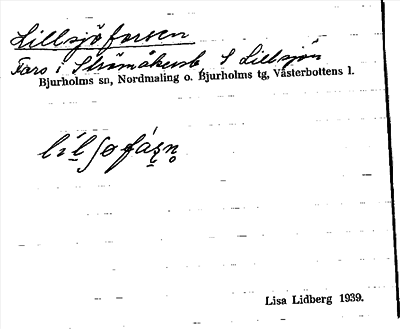 Lillsjöforsen
Fors i Strömåkersb. S Lillsjön
Bjurholms sn, Nordmaling o. Bjurholms tg, Västerbottens l.
Lisa Lidberg 1939.